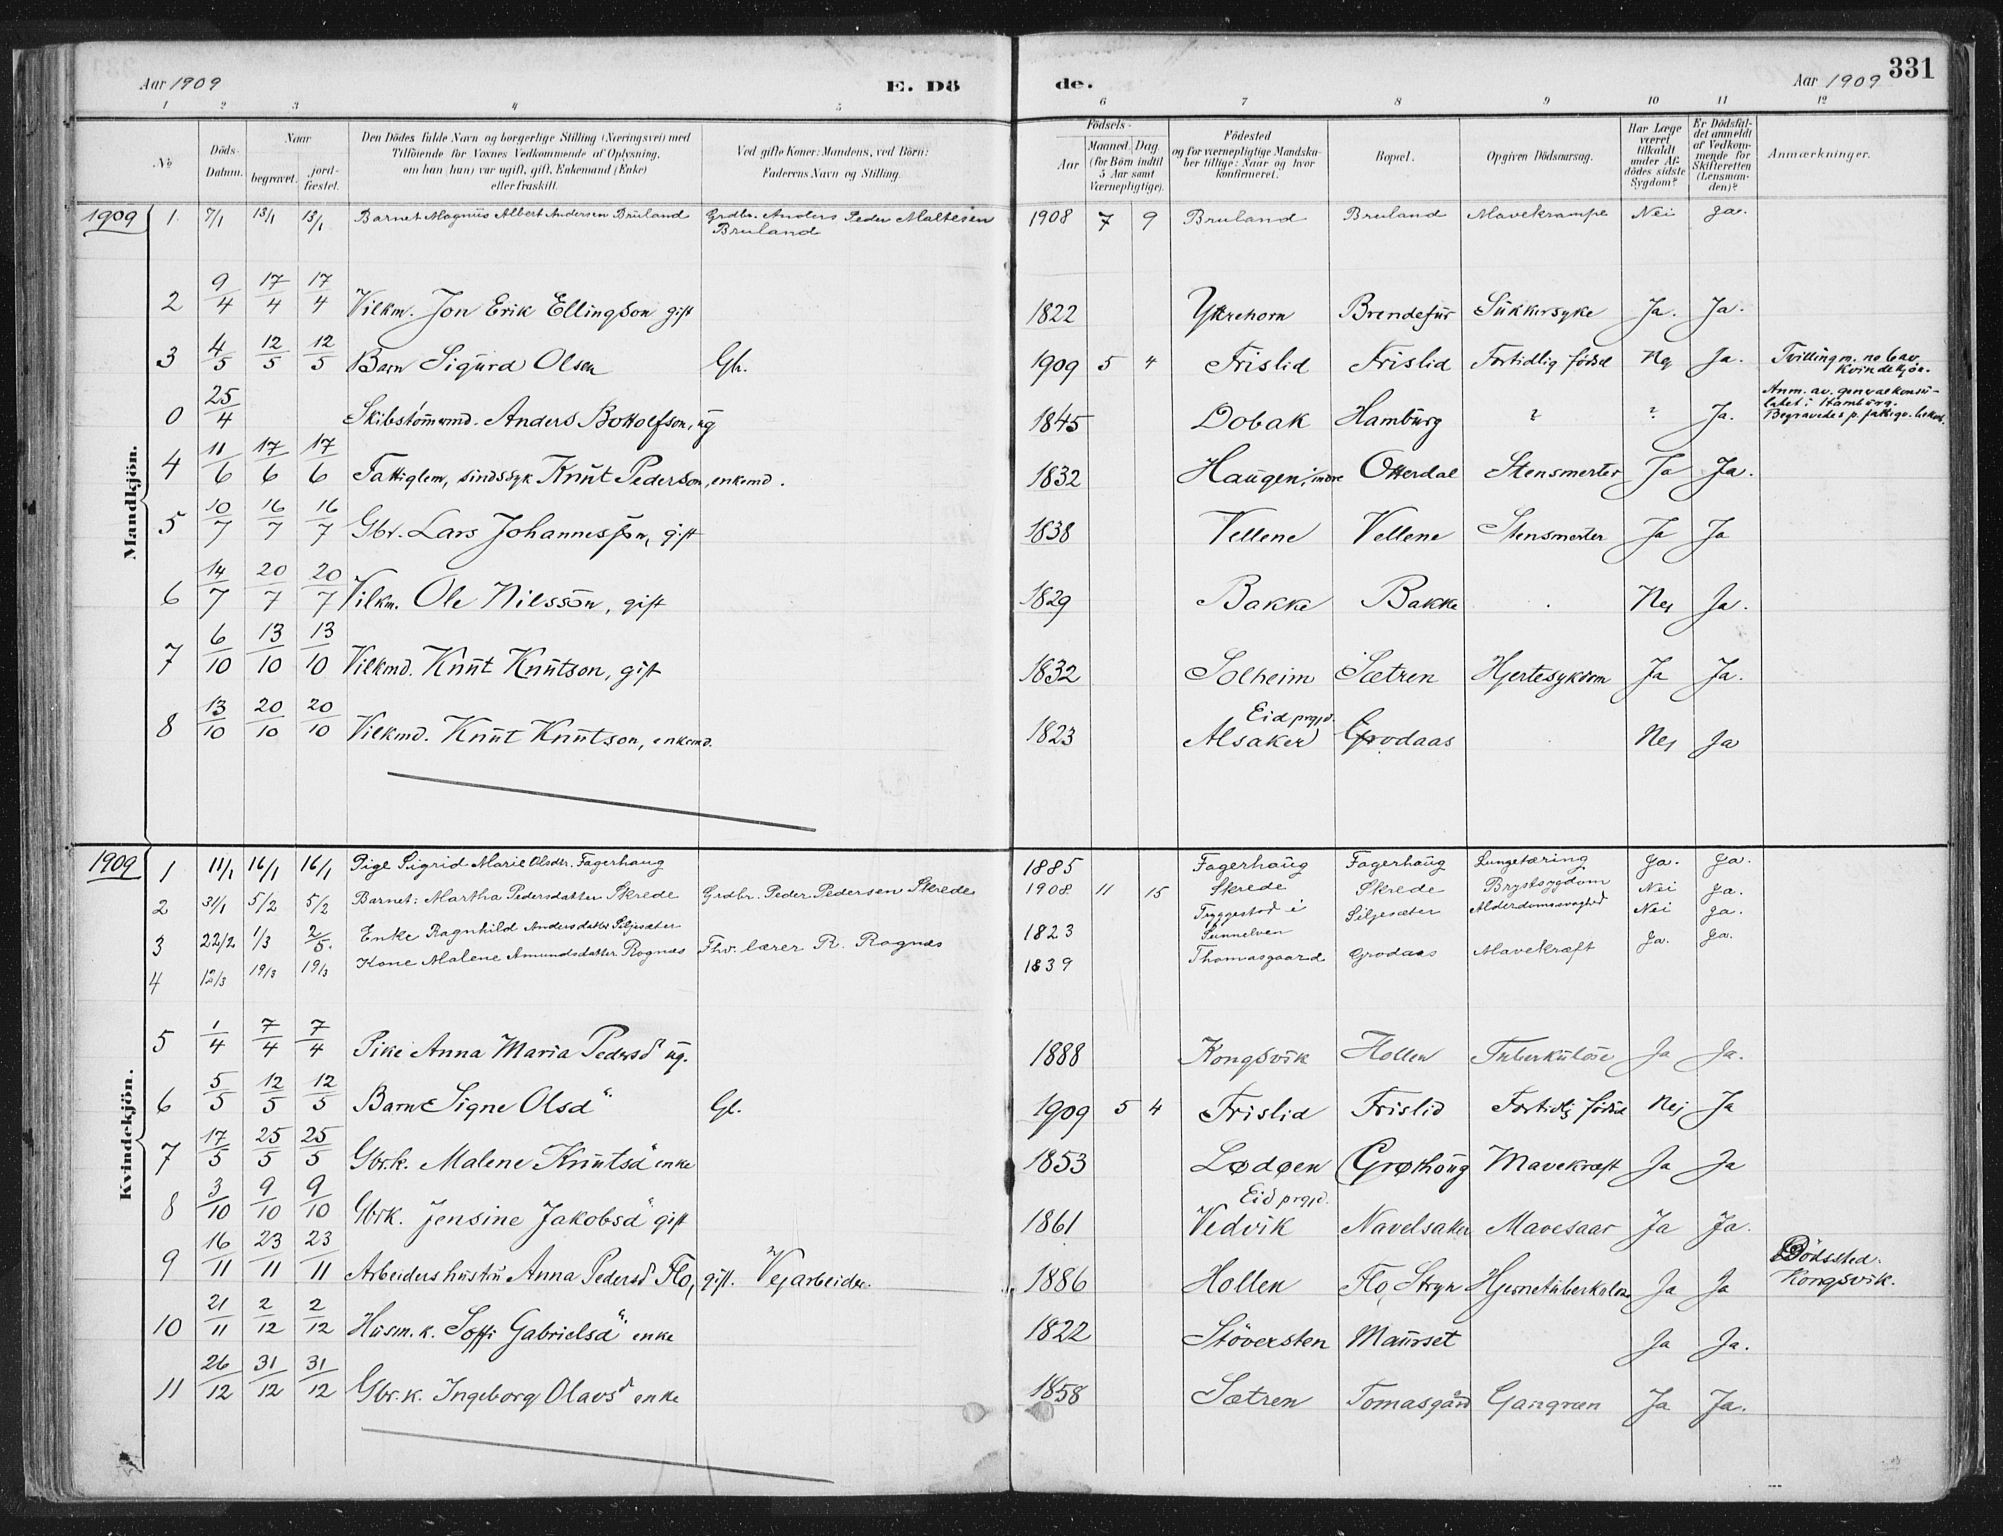 Aar 1909
E. Dö
de.
Aar 1909
331
1 2 3 4 5 6 7 8 9 10 11 12
№
Döds-
Datum.
Naar
begravet.
jord-
fæstet.
Den Dödes fulde Navn og borgerlige Stilling (Næringsvei) med
Tilföiende for Voxnes Vedkommende af Oplysning,
om han (hun) var ugift, gift, Enkemand (Enke)
eller fraskilt.
Ved gifte Koner: Mandens, ved Börn:
Faderens Navn og Stilling.
Födsels-
Aar
Maaned. Dag.
(for Börn indtil
5 Aar samt
Værnepligtige).
Födested
og for værnepligtige Mandska-
ber tillige: Naar og hvor
konfirmeret.
Bopæl.
Opgiven Dödsaarsag.
Har Læge
været
tilkaldt
under Af-
dödes sidste
Sygdom?
Er Dödsfal-
det anmeldt
af Vedkom-
mende for
Skifteretten
(Lensman-
den)?
Anmærkninger.
Mandkjön.
1909 1. 7/1 13/1 13/1 Barnet Magnus Albert Andersen Bruland Grdbr. Anders Peder Maltesen 1908 7 9 Bruland Bruland Mavekrampe Nei ja.
Bruland
2 9/4 17/4 17/4 Vilkm. Jon Erik Ellingson gift 1822 Ytrehorn Brendefur Sukkersyke Ja. Ja.
3 4/5 12/5 12/5 Barn Sigurd Olsen Gb. 1909 5 4 Frislid Frislid Fortidlig födsel Nej Ja. Tvilling m. no 6 av
kvindekjøn.
0 25/4 Skibstømmmd. Anders Bottolfson, ug 1845 Dobak Hamburg ? ? Ja. Anm. av generalkonsu-
latet i Hamburg.
Begravedes p. fattigv. bekost.
4 11/6 17/6 17/6 Fattiglem, sindssyk Knut Pederson, enkemd. 1832 Haugen, indre Otterdal Stensmerter Ja Ja.
5 10/7 16/7 16/7 Gbr. Lars Johannesson, gift 1838 Vellene Vellene Stensmerter Ja Ja
6 14/7 20/7 20/7 Vilkm. Ole Nilsson, gift 1829 Bakke Bakke . Nej Ja.
7 6/10 13/10 13/10 Vilkmd. Knut Knutson, gift 1832 Solheim Sætren Hjertesykdom Ja Ja.
8 13/10 20/10 20/10 Vilkmd. Knut Knutson, enkemd. 1823 Eid prgjd. Alsaker Grodaas . Nej Ja
Kvindekjön.
1909 1 11/1 16/1 16/1 Pige Sigrid Marie Olsdtr. Fagerhaug 1885 Fagerhaug Fagerhaug Lungetæring Ja. Ja.
2 31/1 5/2 5/2 Barnet: Martha Pedersdatter Skrede Grdbr. Peder Pedersen Skrede 1908 11 15 Skrede Skrede Brystsygdom Nei ja.
3 22/2 1/3 2/5. Enke Ragnhild Andersdatter Siljesæter 1823 Tryggestad i Sunnelven Siljesæter Alderdomssvaghed Nei ja.
4 12/3 19/3 19/3 Kone Malene Amundsdatter Rognæs Fhv. lærer R. Rognæs 1839 Thomasgaard Grodaas Mavekræft Ja. Ja.
5 1/4 7/4 7/4 Pike Anna Maria Pedersd ug. 1888 Kongsvik Hollen Tuberkulose Ja Ja.
6 5/5 12/5 12/5 Barn Signe Olsd Gl. 1909 5 4 Frislid Frislid Fortidlig födsel Nej Ja
7 17/5 25/5 25/5 Gbr.k. Malene Knutsd enke 1853 Lødøen Grøthaug Mavekræft Ja Ja
8 3/10 9/10 9/10 Gbrk. Jensine Jakobsd gift 1861 Eid prgjd. Vedvik Navelsaker Mavesaar Ja Ja.
9 16/11 23/11 23/11 Arbeiderhustru Anna Pedersd Flo, gift. Vejarbeider. 1886 Hollen Flo, Stryn Hjernetuberkulose Ja Ja Dödssted.
Kongsvik.
10 21/11 2/12 2/12 Husm.k. Soffi Gabrielsd enke 1822 Stöversten Maurset Ja Ja.
11 26/12 31/12 31/12 Gbr.k. Ingeborg Olavsd enke 1858 Sætren Tomasgård Gangræn Ja Ja.